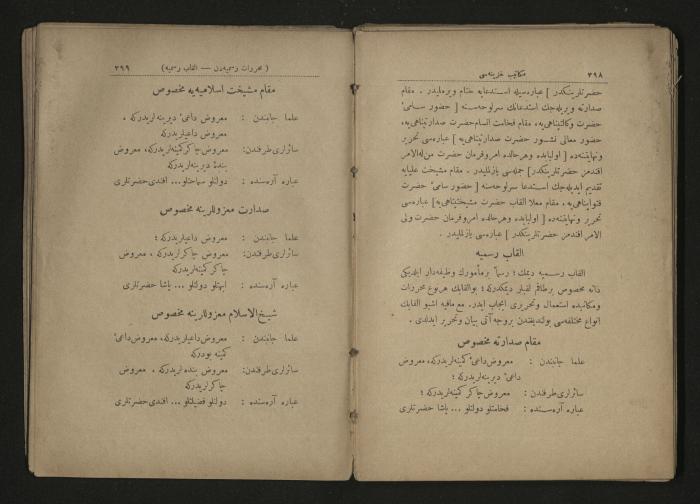 ٣٩٨
مكاتيب خزينه‌سى
حضرتلرينكدر ] عباره‌سيله استدعايه ختام ويرمليدر . مقام
صدارته ويريله‌جك استدعانك سرلوحه‌سنه [ حضور سامئ
حضرت وكالتپناهى‌يه، مقام فخامت اتسام حضرت صدارتپناهى‌يه،
حضور معالئ نشور حضرت صدارتپناهى‌يه ] عباره‌سى تحرير
ونهايتنده [ اولبابده وهرحالده امروفرمان حضرت من له‌الامر
افندمز حضرتلرينكدر ] جمله‌سى يازلمليدر . مقام مشيخت عليايه
تقديم ايديله‌جك استدعا سرلوحه‌سنه [ حضور سامئ حضرت
فتواپناهى‌يه ، مقام معلا القاب حضرت مشيختپناهى‌يه ] عباره‌سى
تحرير ونهايتنده [ اولبابده وهرحالده امروفرمان حضرت ولى
الامر افندمز حضرتلرينكدر ] عباره‌سى يازلمليدر .
القاب رسميه
القاب رسميه ديمك ؛ رسماً برمأمورك وظيفه‌دار ايلديكى
ذاته مخصوص برطاقم لقبلر ديمكدركه ؛ بوالقابك هرنوع محررات
ومكاتبده استعمال وتحريرى ايجاب ايدر. مع مافيه اشبو القابك
انواع مختلفه‌سى بولنديغندن بروجه آتى بيان وتحرير ايدلدى .
مقام صدارته مخصوص
علما جانبندن : معروض داعئ كمينه‌لريدركه، معروض
داعئ ديرينه‌لريدركه ؛
سائرلرى طرفندن : معروض چاكر كمينه‌لريدركه ؛
عباره آره‌سنده : فخامتلو دولتلو ... پاشا حضرتلرى
( محررات رسميه‌دن — القاب رسميه ) ٣٩٩
مقام مشيخت اسلاميه‌يه مخصوص
علما جانبندن : معروض داعئ ديرينه‌لريدركه ،
معروض داعيلريدركه
سائرلرى طرفندن: معروض چاكر كمينه‌لريدركه، معروض
بندهٔ ديرينه‌لريدركه
عباره آره‌سنده : دولتلو سماحتلو... افندى حضرتلرى
صدارت معزوللرينه مخصوص
علما جانبندن : معروض داعيلريدركه ؛
سائرلرى طرفندن: معروض چاكرلريدركه ، معروض
چاكر كمينه‌لريدركه
عباره آره‌سنده : ابهتلو دولتلو ... پاشا حضرتلرى
شيخ‌الاسلام معزوللرينه مخصوص
علما جانبندن : معروض داعيلريدركه، معروض داعئ
كمينه بودركه
سائرلرى طرفندن: معروض بنده‌لريدركه ، معروض
چاكرلريدركه
عباره آره‌سنده : دولتلو فضيلتلو ... افندى حضرتلرى